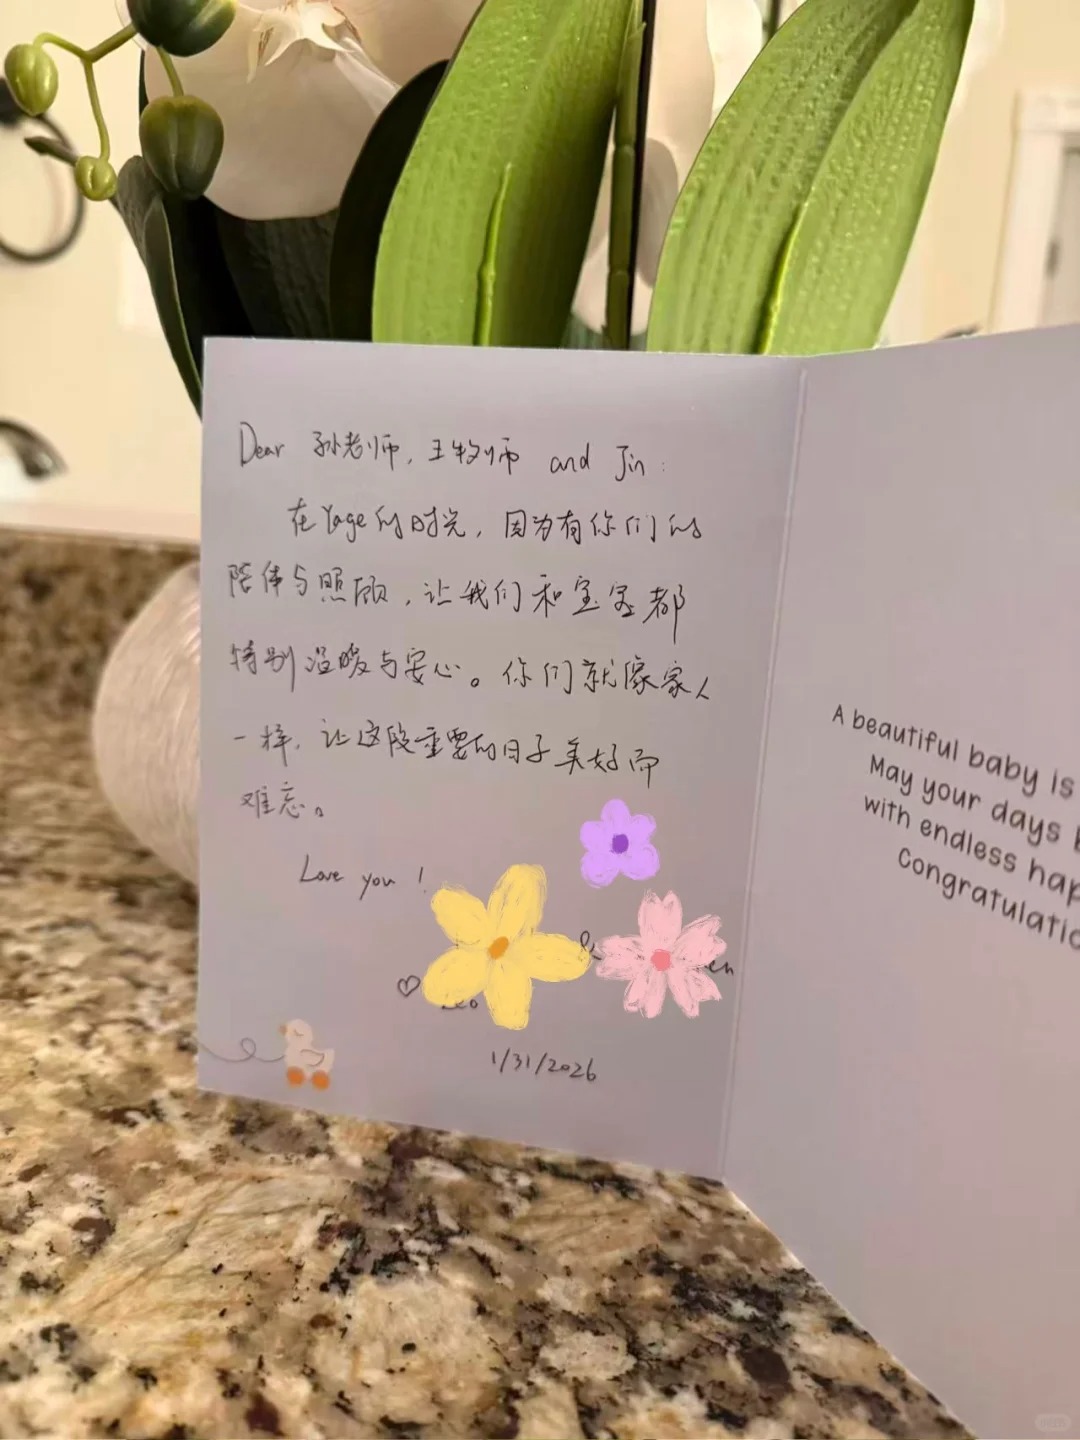 Dear 孙老师, 王牧师 and Jin:
在Yage的时光, 因为有你们的
陪伴与照顾, 让我们和宝宝都
特别温暖与安心。你们就像家人
一样, 让这段重要的日子美好而
难忘。
Love you!
&
1/31/2026
A beautiful baby is
May your days
with endless